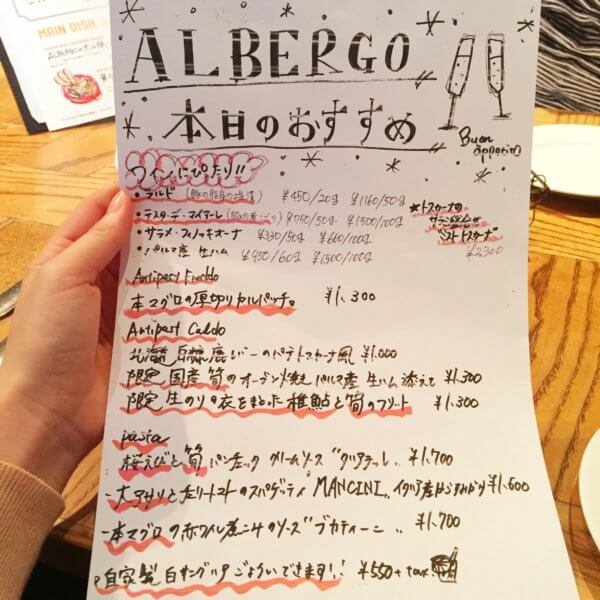 MAIN DISH
ALBERGO
本日のおすすめ
Buon appetito!!
ワインにぴたり!!
・ラルド (豚の脂身の塩漬) ¥450/20g ¥1160/50g
・テスタ・デ・マイアーレ ¥750/50g ¥1500/100g
・サラメ・フィノッキオーナ ¥330/50g ¥660/100g
・パルマ産 生ハム ¥950/60g ¥1500/100g
★トスカーナの
サラミ盛合せ
ミスト トスカーナ
¥2,300
Antipasti Freddo
本マグロの厚切りカルパッチョ。 ¥1,300
Antipasti Caldo
北海道 白糠 鹿レバーのパテトスカーナ風 ¥1,000
限定 国産 筍のオーブン焼き パルマ産 生ハム添えで ¥1,300
限定 生のりの衣をまとった稚鮎と筍のフリット ¥1,300
pasta
桜えびと筍 パンチェッタ クリームソース"タリアテッレ" ¥1,700
大アサリとセミドライトマトのスパゲッティ"MANCINI" イタリア産からすみがけ ¥1,600
本マグロの赤ワイン煮込みのソース"ブカティーニ" ¥1,700
自家製 白サングリア ごよういできます!! ¥550+tax